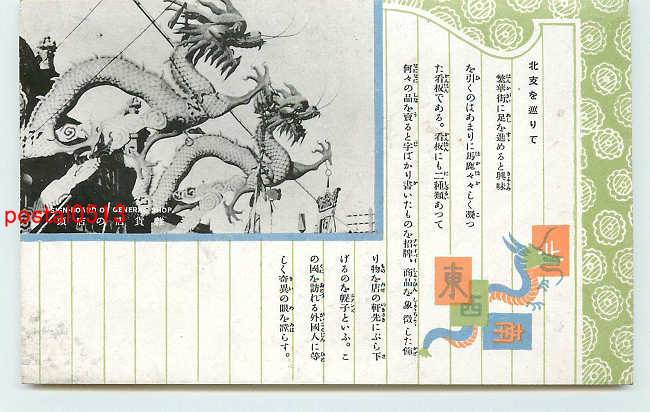 北支を巡りて
繁華街に足を進めると興味
を引くのはあまりに馬鹿々々しく凝つ
た看板である。看板にも二種類あつて
何々の品を賣ると字ばかり書いたものを招牌、商品を象徴した飾
り物を店の軒先にぶら下
げるのを幌子といふ。こ
の國を訪れる外國人に等
しく奇異の眼を濡らす。
北
東
西
南
SIGN-BOARD OF GENERAL SHOP
雜貨店の
pesta0513